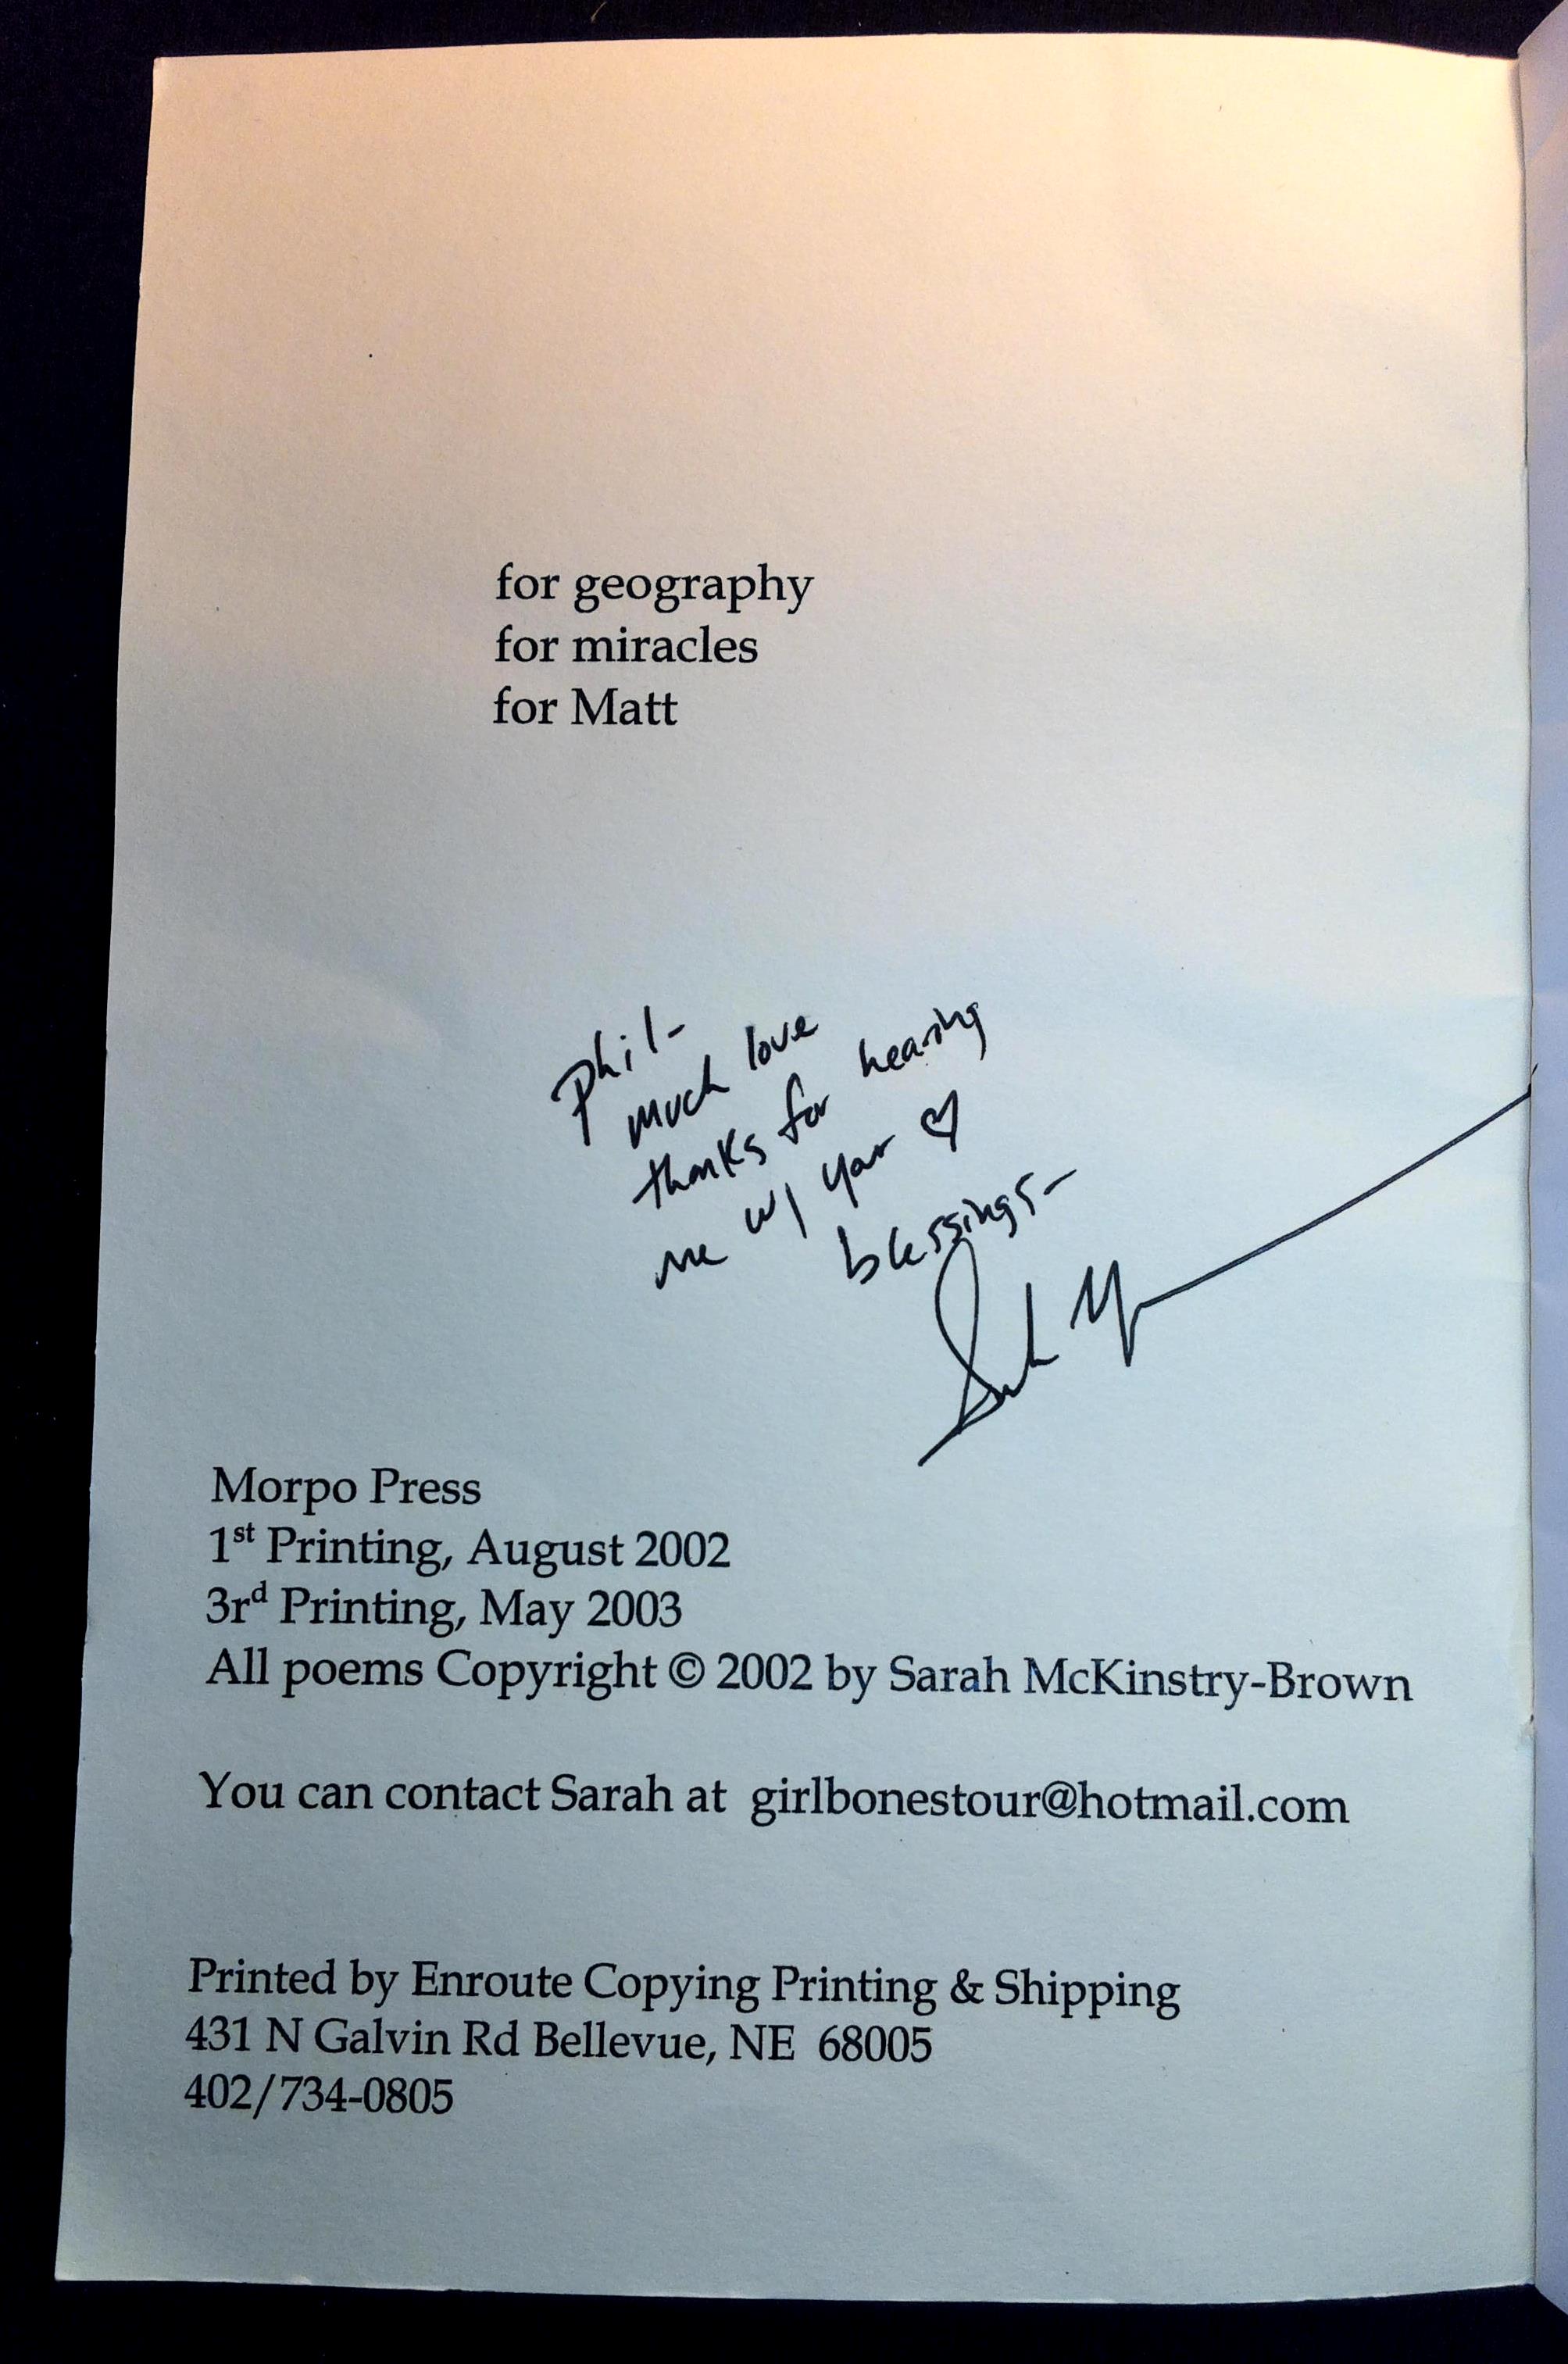 for geography
for miracles
for Matt
Phil-
much love
thanks for hearing
me w/ your ♡
blessings-
Morpo Press
1st Printing, August 2002
3rd Printing, May 2003
All poems Copyright © 2002 by Sarah McKinstry-Brown
You can contact Sarah at girlbonestour@hotmail.com
Printed by Enroute Copying Printing & Shipping
431 N Galvin Rd Bellevue, NE 68005
402/734-0805